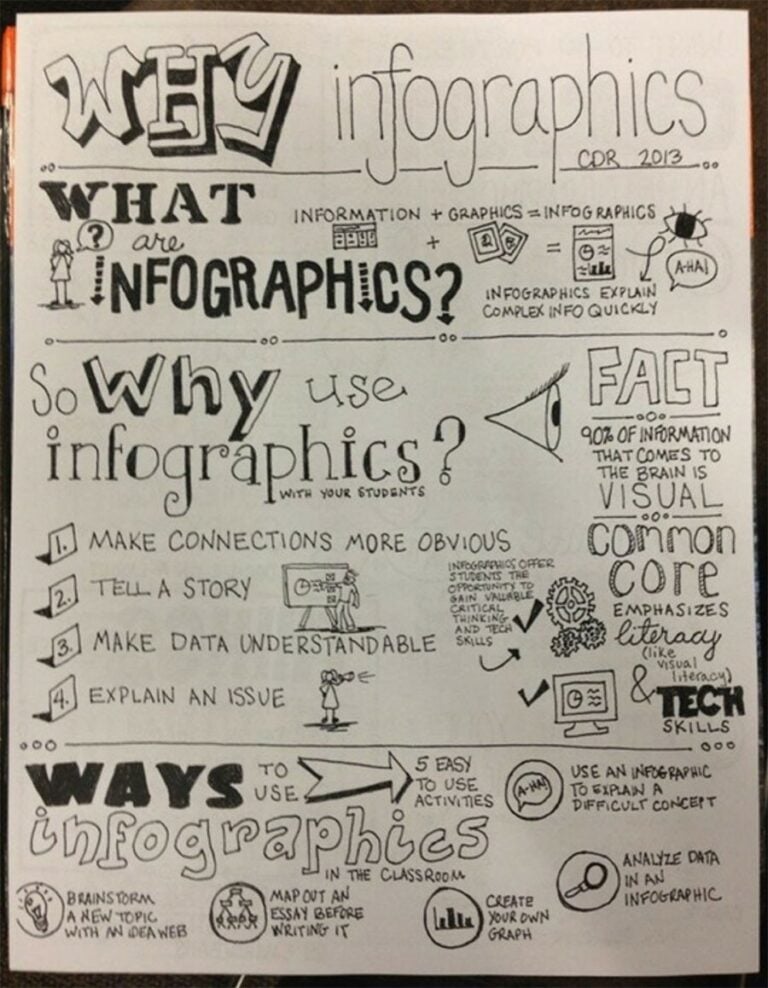 WHY infographics
CDR 2013
WHAT
are
INFOGRAPHICS?
?
INFORMATION + GRAPHICS = INFOGRAPHICS
+ =
A-HA!
INFOGRAPHICS EXPLAIN
COMPLEX INFO QUICKLY
So Why use
infographics?
WITH YOUR STUDENTS
1. MAKE CONNECTIONS MORE OBVIOUS
2. TELL A STORY
3. MAKE DATA UNDERSTANDABLE
4. EXPLAIN AN ISSUE
INFOGRAPHICS OFFER
STUDENTS THE
OPPORTUNITY TO
GAIN VALUABLE
CRITICAL
THINKING
AND TECH
SKILLS
FACT
90% OF INFORMATION
THAT COMES TO
THE BRAIN IS
VISUAL
common
core
EMPHASIZES
literacy
(like
visual
literacy)
& TECH
SKILLS
WAYS TO
USE
infographics
IN THE CLASSROOM
5 EASY
TO USE
ACTIVITIES
A-HA!
USE AN INFOGRAPHIC
TO EXPLAIN A
DIFFICULT CONCEPT
BRAINSTORM
A NEW TOPIC
WITH AN IDEA WEB
MAP OUT AN
ESSAY BEFORE
WRITING IT
CREATE
YOUR OWN
GRAPH
ANALYZE DATA
IN AN
INFOGRAPHIC